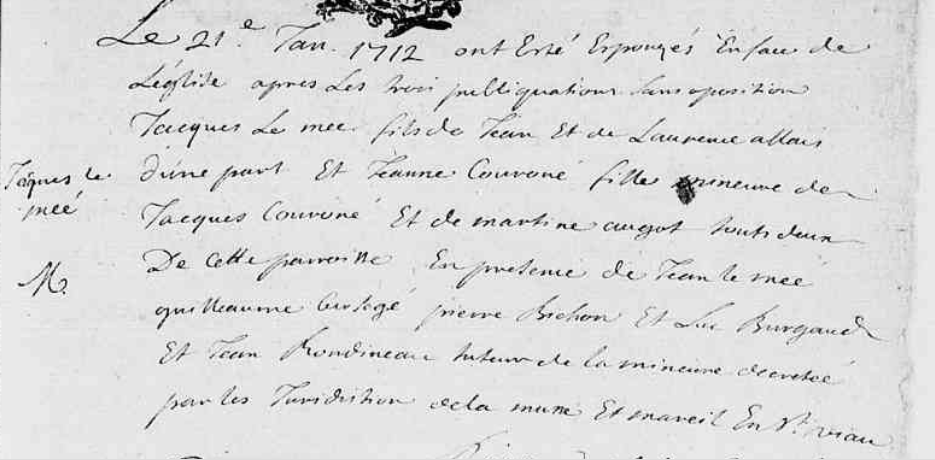 Le 21.e Jan. 1712 ont Esté Espouzés En face de
L'église apres Les trois publiquations sans oposition
Jacques Le meé fils de Jean Et de Laurence allais
d'une part Et Jeanne Couroné fille mineure de
Jaques le
meé
Jacques Couroné Et de martine augot touts deux
M.
De Cette parroisse En presence de Jean le meé
guilleaume pierre Bichon Et Luc Burgaud
Et Jean Rondineau tuteur de la mineure decretée
par les Juridiction de la Et mareil En St. viau